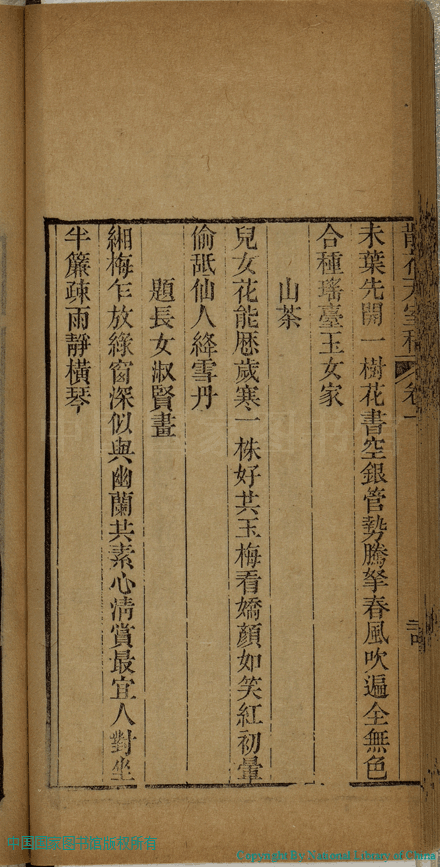 散花天室稿 卷一
未葉先開一樹花書空銀管勢騰拏春風吹遍全無色
合種瑤臺玉女家
山茶
兒女花能歷歲寒一株好共玉梅看嬌顏如笑紅初暈
偷舐仙人絳雪丹
題長女淑賢畫
緗梅乍放綠窗深似與幽蘭共素心清賞最宜人對坐
半簾疎雨靜橫琴
中国国家图书馆版权所有
Copyright By National Library of China